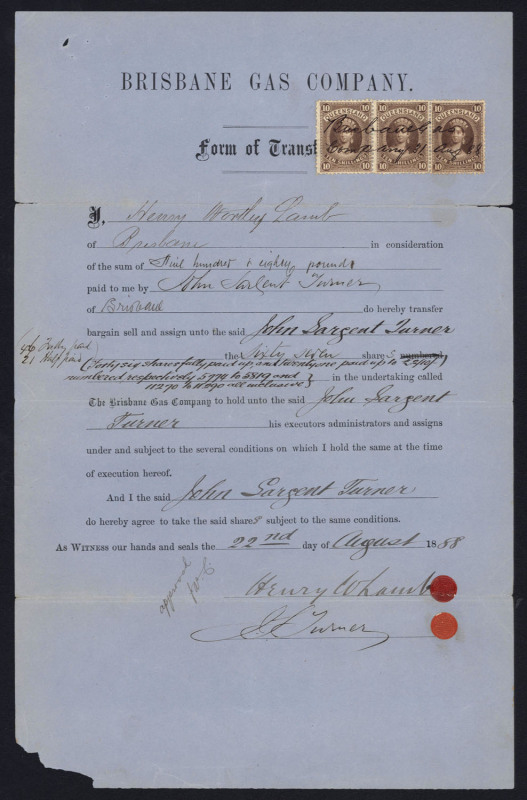 BRISBANE GAS COMPANY.
10 QUEENSLAND 10 10 QUEENSLAND 10 10 QUEENSLAND 10
TEN SHILLINGS TEN SHILLINGS TEN SHILLINGS
Form of Transf
I, Henry Worthy Lamb
of Brisbane in consideration
of the sum of Nine hundred + eighty pounds
paid to me by John Sargent Turner
of Brisbane do hereby transfer
bargain sell and assign unto the said John Sargent Turner
46 Fully paid
21 Half paid
the Sixty Seven shares numbered
(Forty six shares fully paid and twenty one paid up to
numbered respectively 5774 to 5819 and
11270 to 11290 all inclusive) in the undertaking called
The Brisbane Gas Company to hold unto the said John Sargent
Turner his executors administrators and assigns
under and subject to the several conditions on which I hold the same at the time
of execution hereof.
And I the said John Sargent Turner
do hereby agree to take the said shares subject to the same conditions.
As Witness our hands and seals the 22nd day of August 1888
approved
Henry W Lamb
J. S. Turner